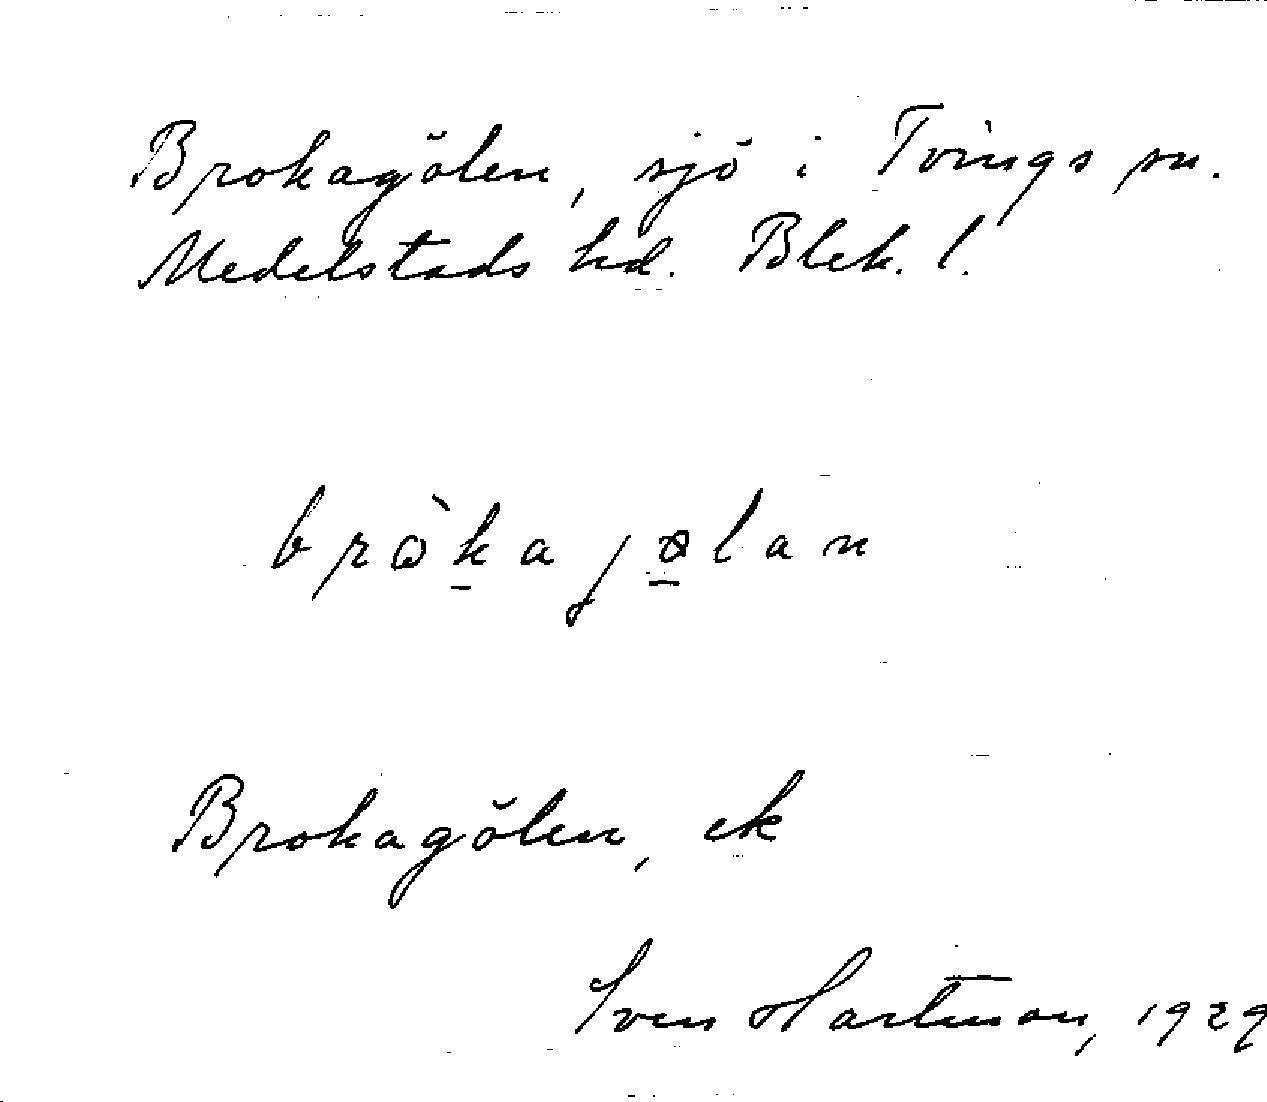 Brokagölen, sjö i Tvings sn.
Medelstads hd. Blek. l.
bròk̲ajø̲lan
Brokagölen, ek
Sven Hartman, 1929